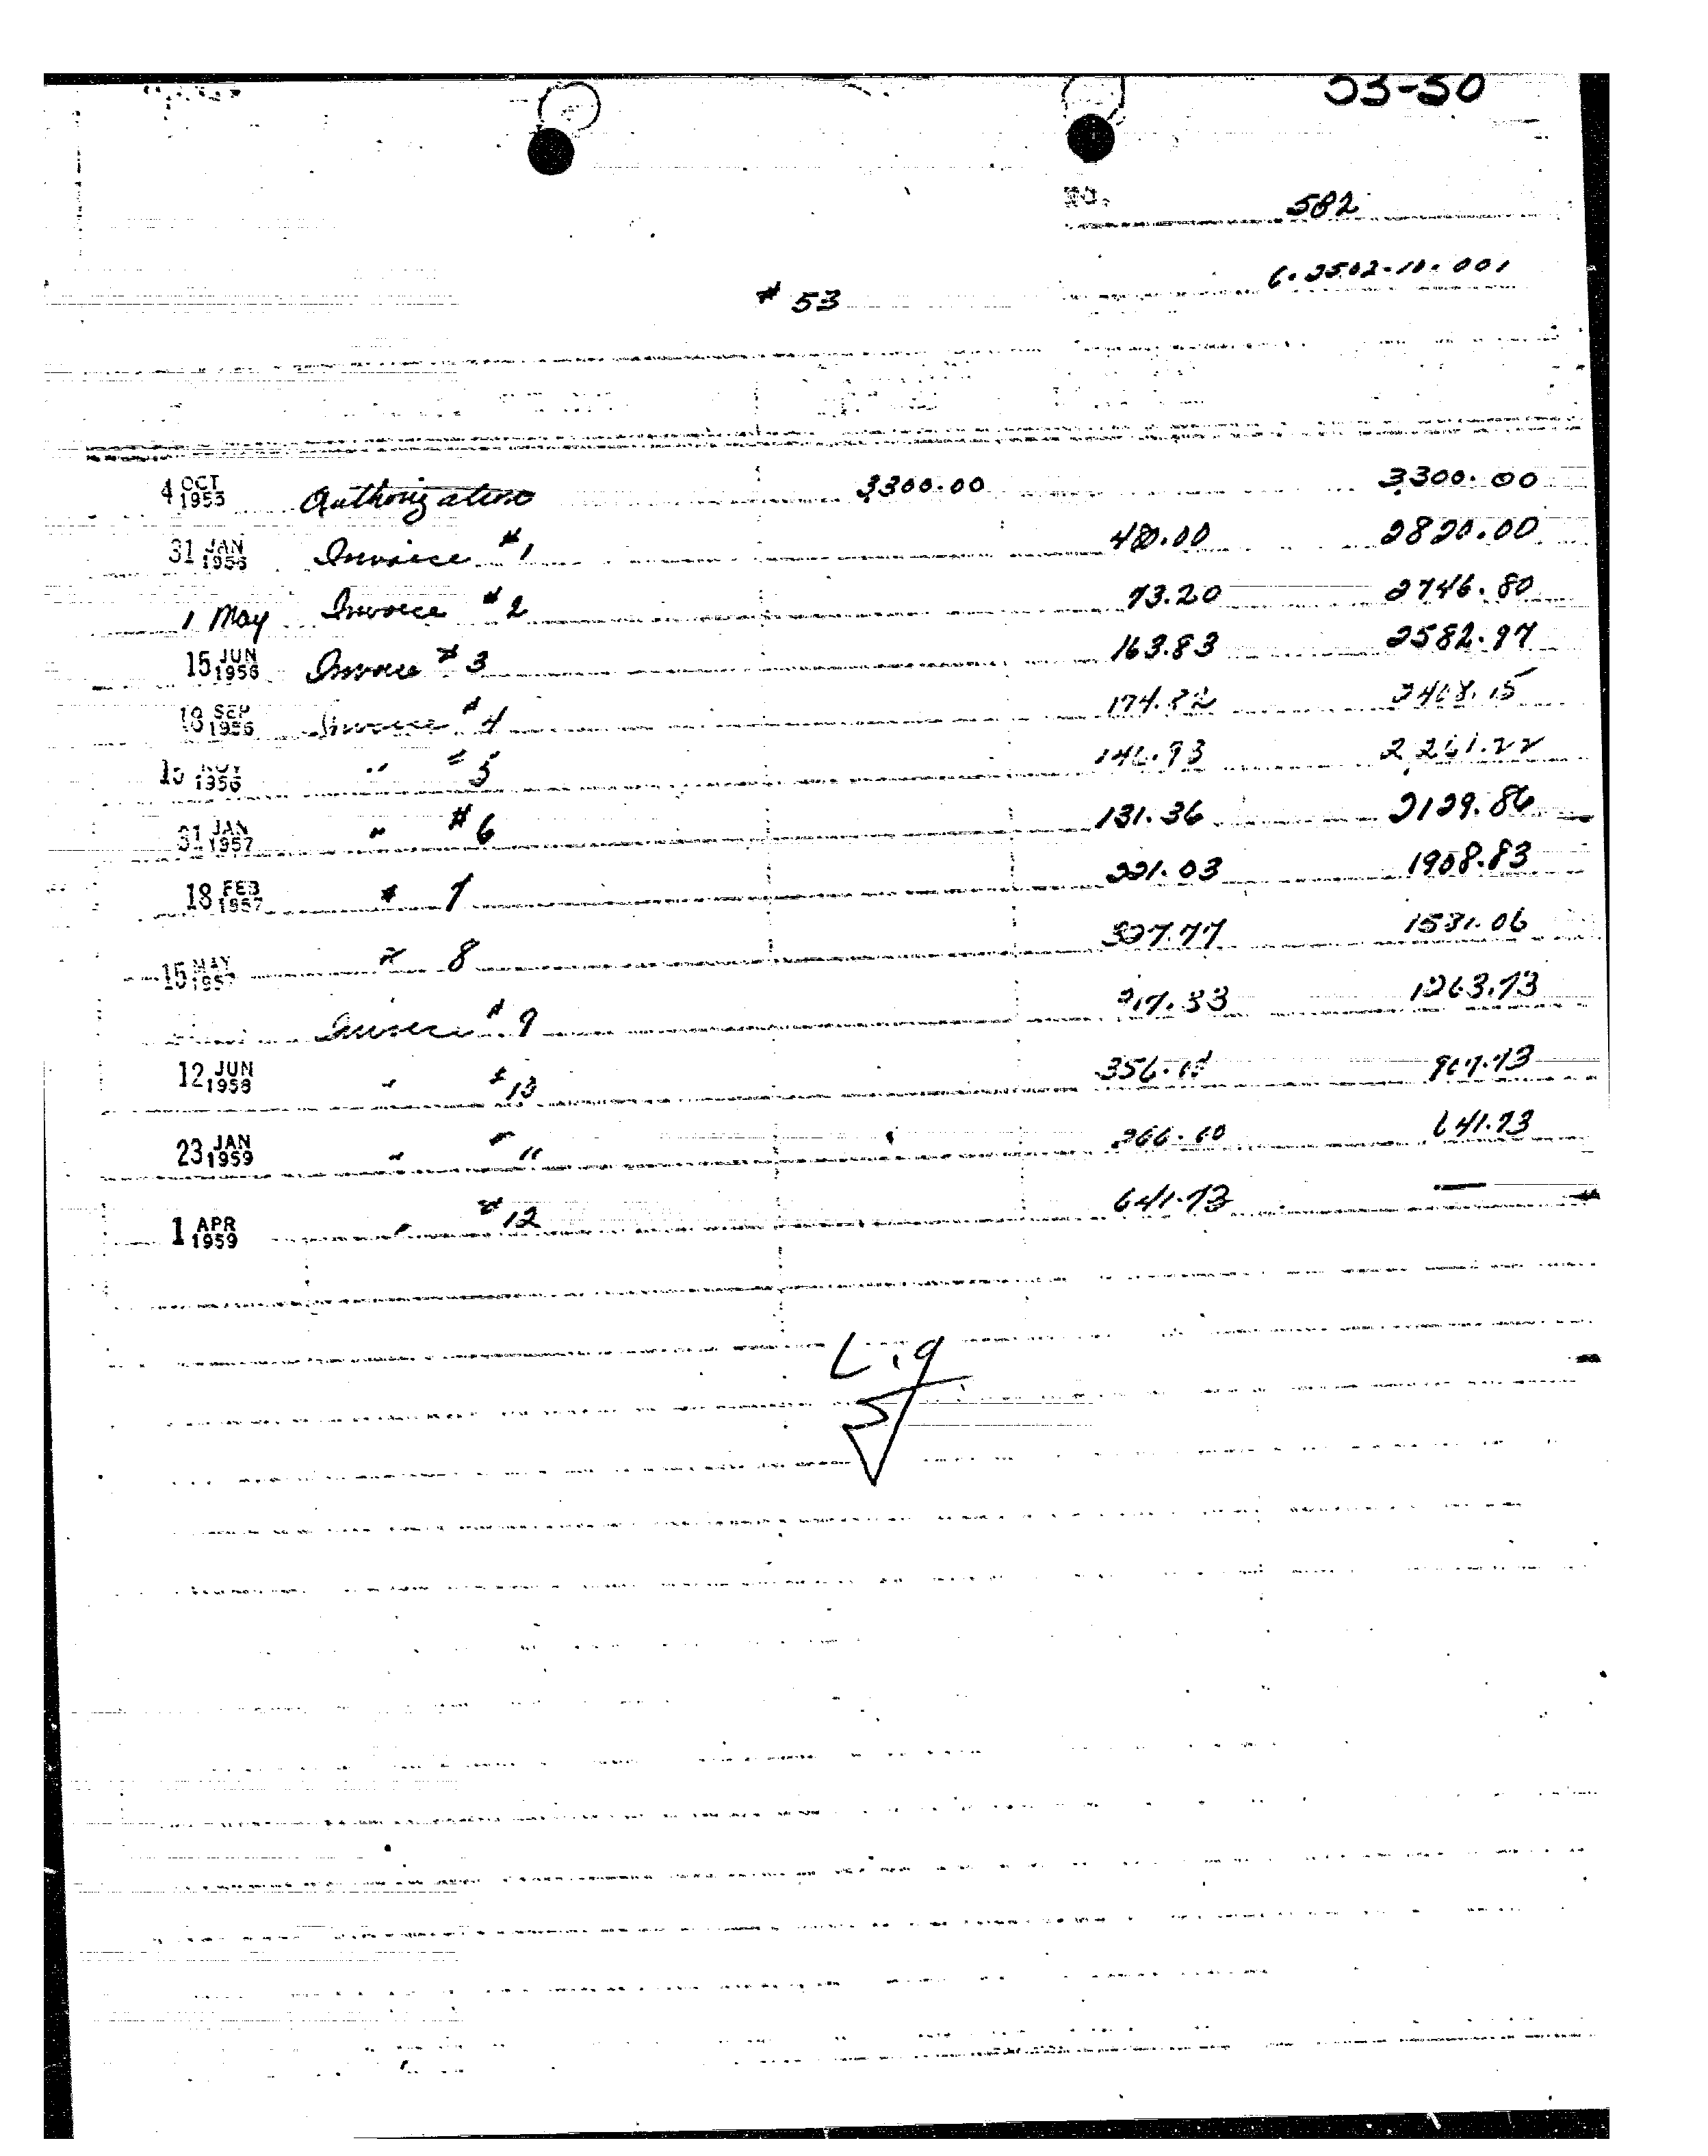 53-50
NO. 582
6.2502-10.001
# 53
4 OCT 1955 Authorization 3300.00 3300.00
31 JAN 1956 Invoice #1 480.00 2820.00
1 May Invoice #2 73.20 2746.80
15 JUN 1956 Invoice #3 163.83 2582.97
18 SEP 1956 Invoice #4 174.82 2408.15
15 NOV 1956 " #5 146.93 2261.22
31 JAN 1957 " #6 131.36 2129.86
18 FEB 1957 # 7 221.03 1908.83
15 MAY 1957 # 8 1531.06
Invoice #9 1263.73
12 JUN 1958 " #10 356.00 907.73
23 JAN 1959 " " 11 266.00 641.73
1 APR 1959 " #12 641.73 —
Liq